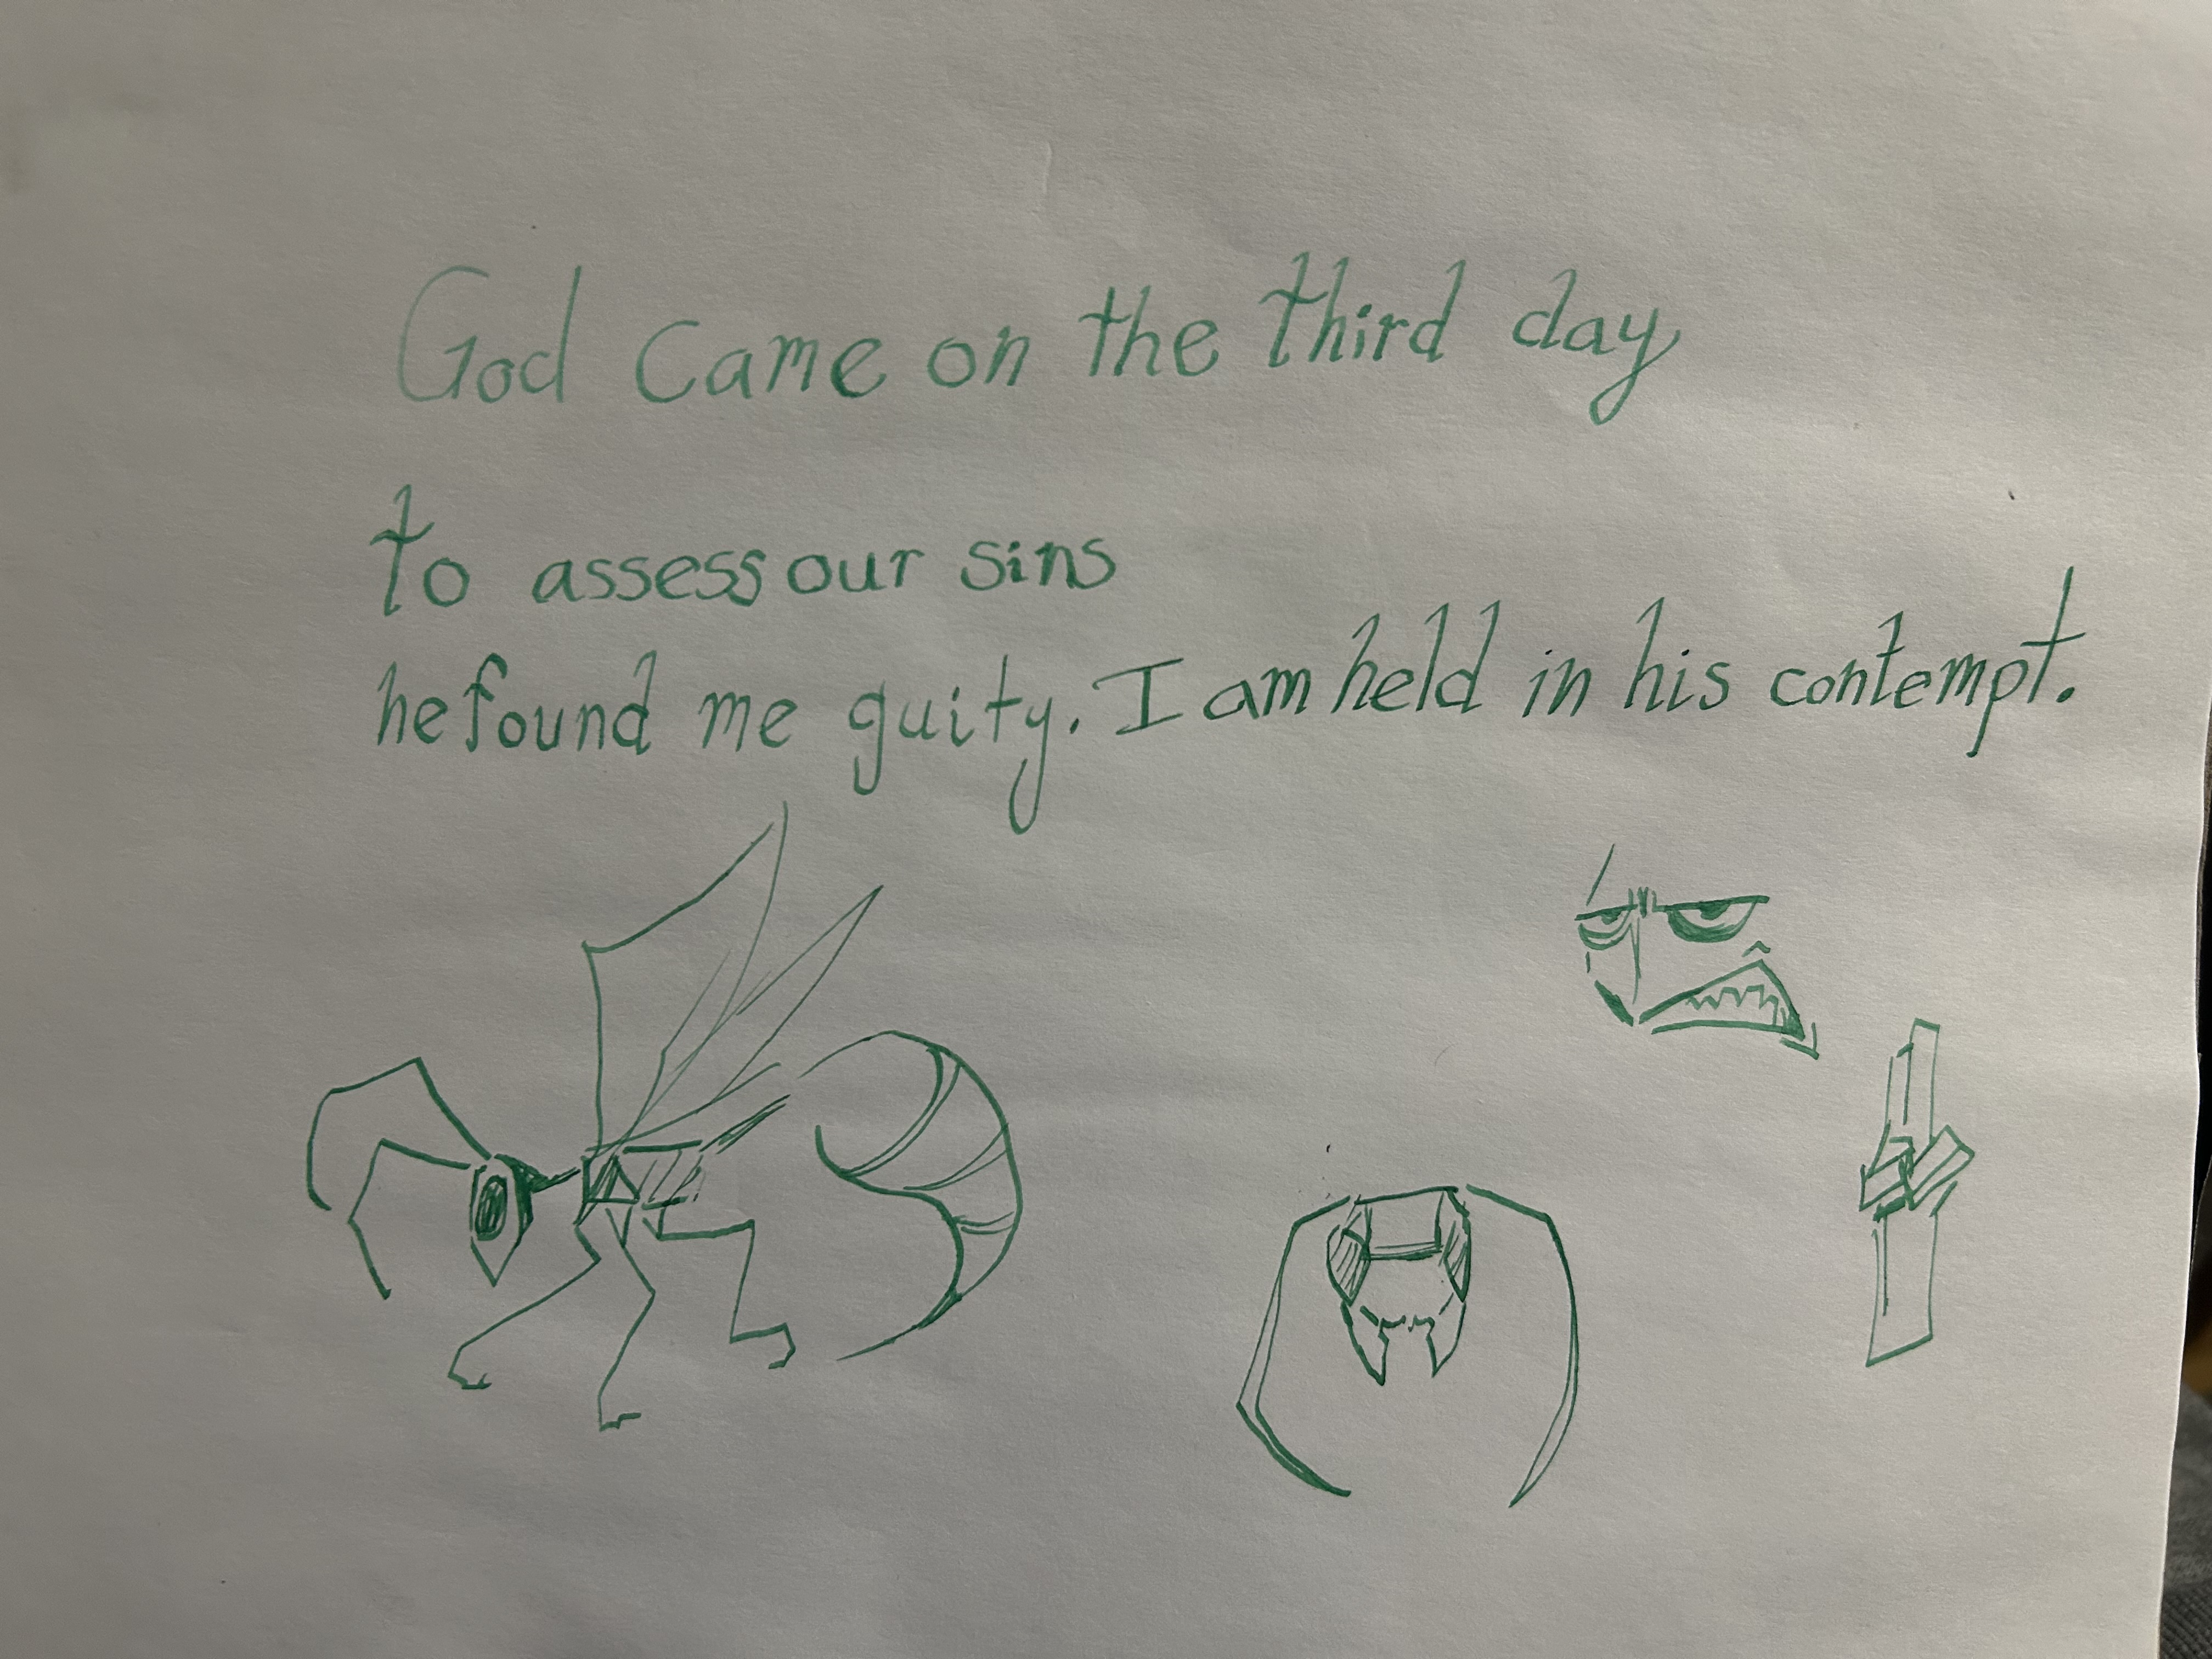 God came on the third day
to assess our sins
he found me guity. I am held in his contempt.